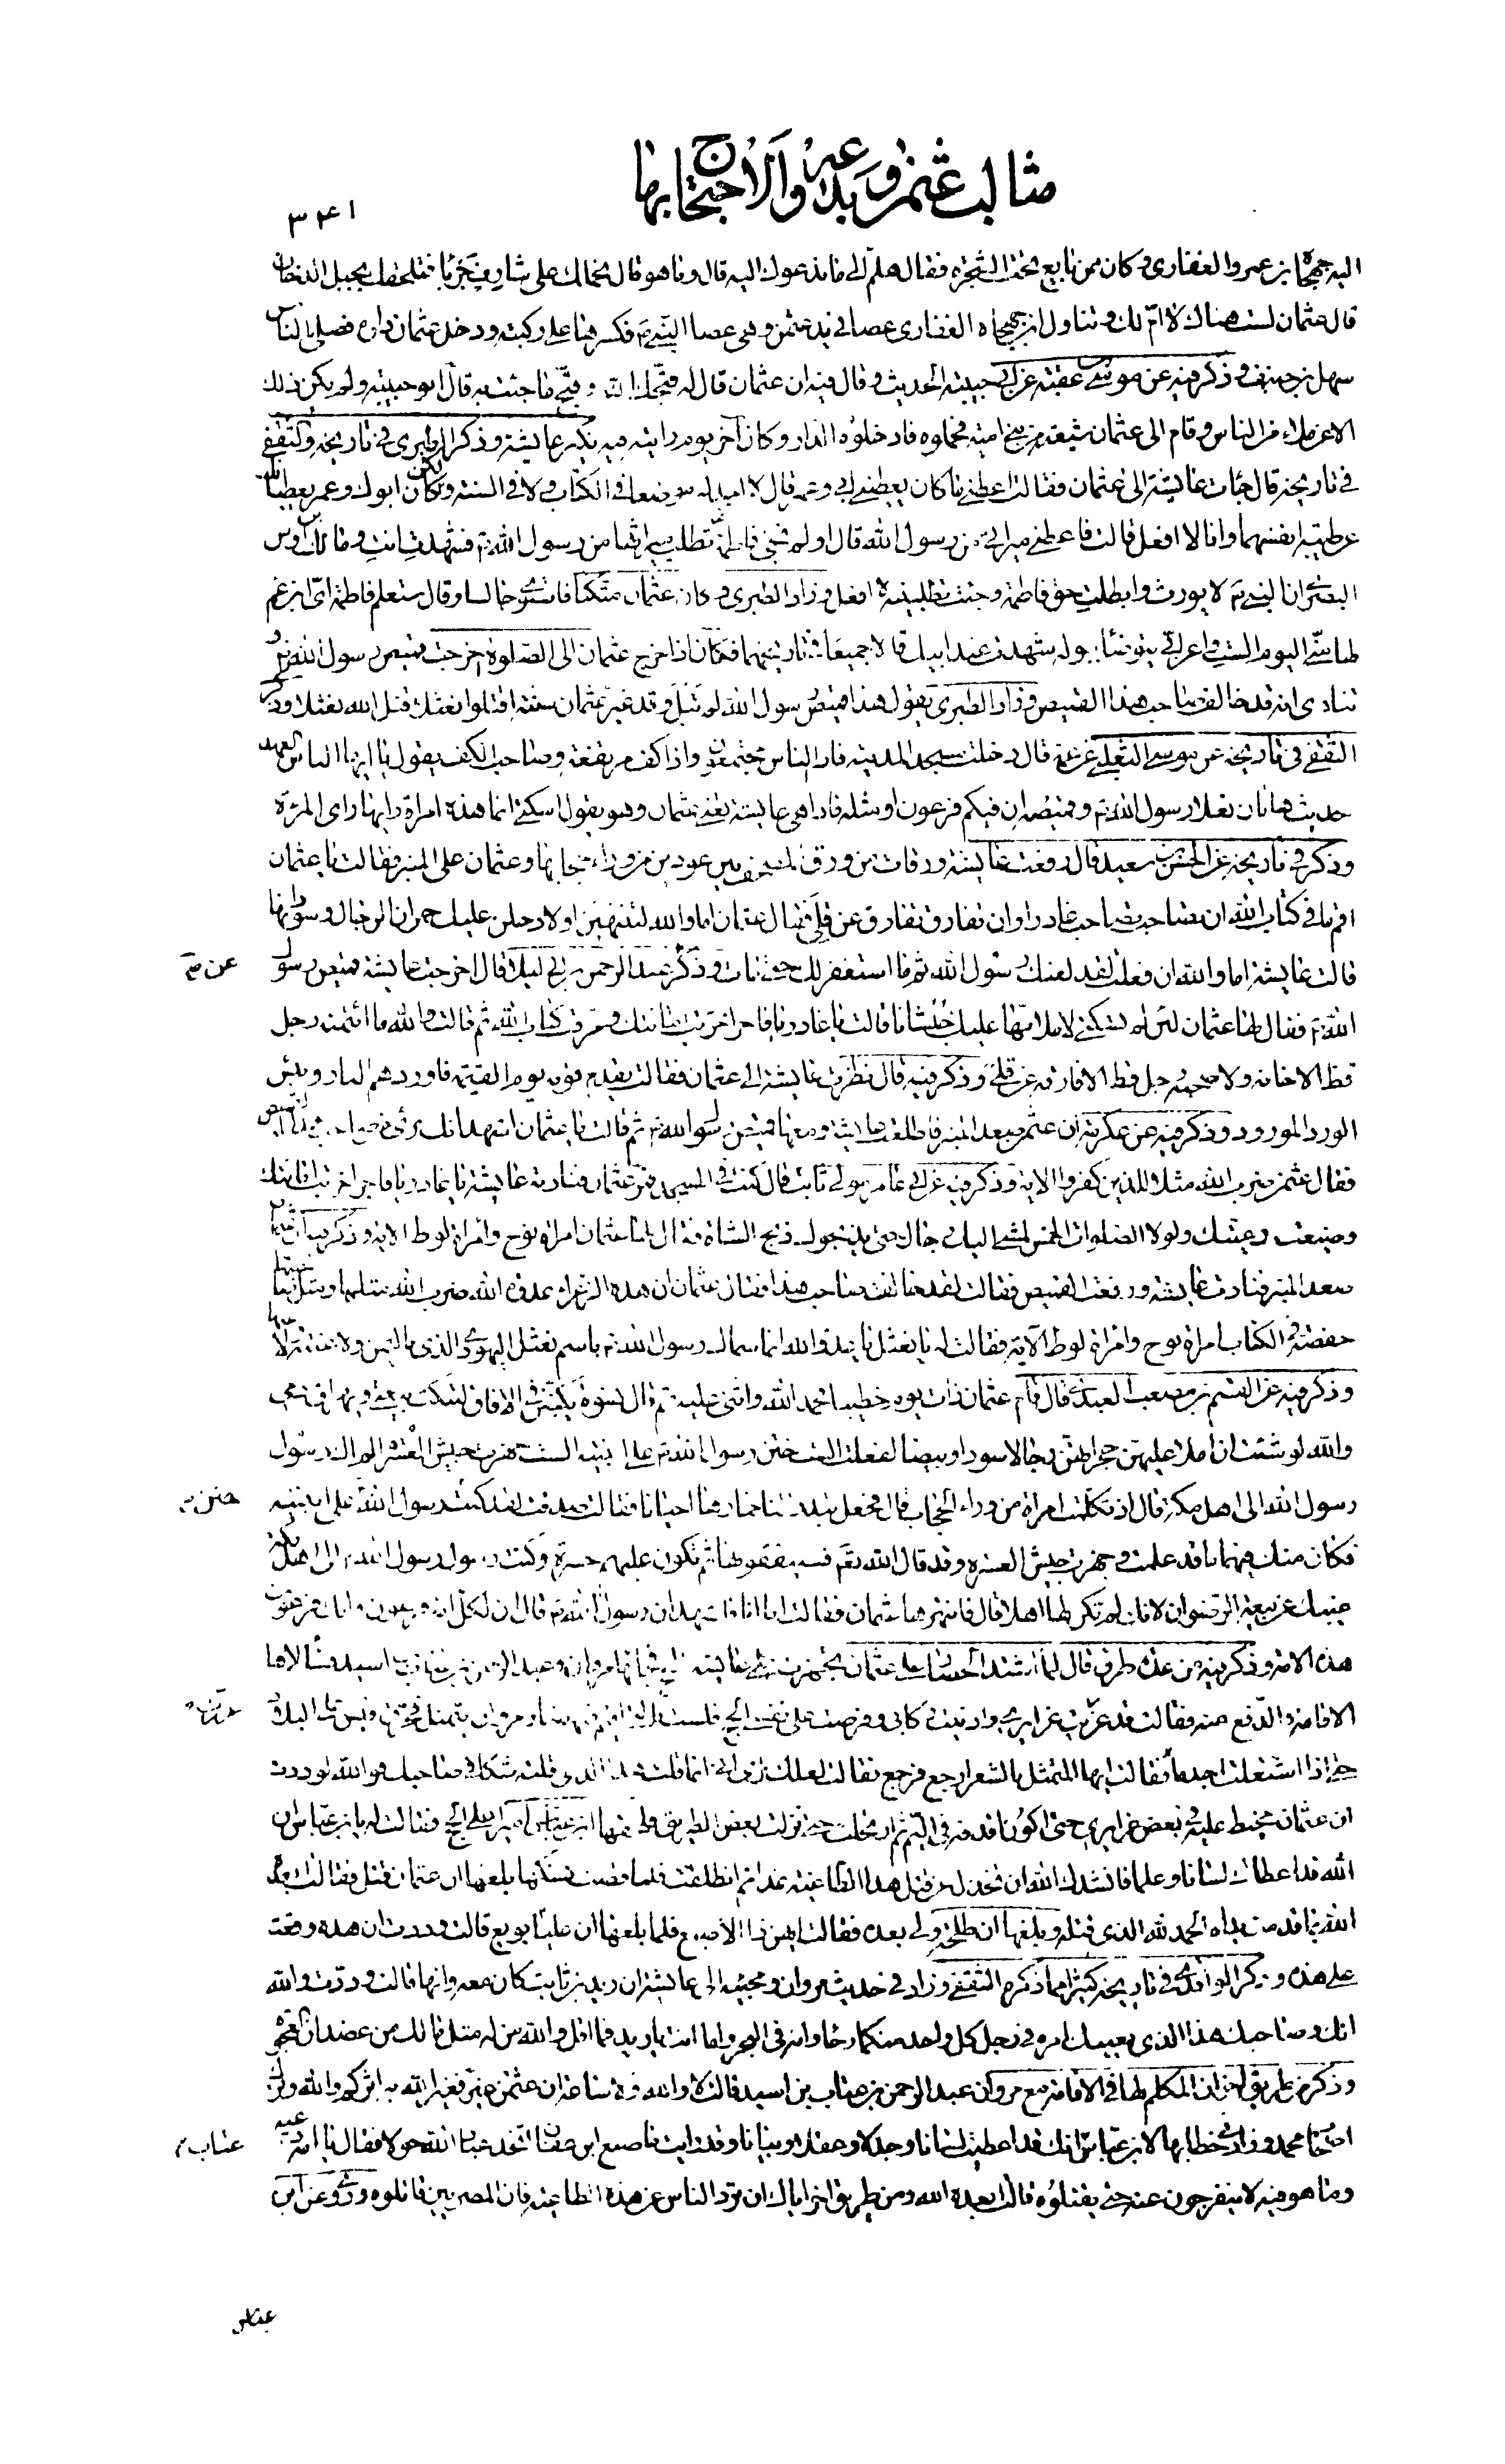 مثالب عثمن وبدعه والاحتجاج بها
٣٤١
اليه جهجاه بن عمرو الغفاري وكان ممن بايع تحت الشجرة فقال هلم الى ما ندعوك اليه قال وما هو قال نحملك على شارف جرباء فتلحقك بجبل الدخان
قال عثمان لست هناك لا ام لك وتناول ابن جهجاه الغفاري عصا في يد عثمن وهي عصا النبي ص فكسرها على ركبته ودخل عثمان داره فصلى بالناس
سهل بن حنيف وذكر فيه عن موسى بن عقبة عن ابي حبيبة الحديث وقال فيه ان عثمان قال له قبحك الله وقبح ما جئت به قال ابو حبيبة ولم يكن ذلك
الا عن ملاء من الناس وقام الى عثمان شيعته من بني امية فحملوه فادخلوه الدار وكان آخر يوم رايته فيه نكير عايشة وذكر الطبري في تاريخه والثقفي
في تاريخه قال جائت عايشة الى عثمان فقالت اعطني ما كان يعطيني ابي وعمر قال لا اجد له موضعا في الكتاب ولا في السنة ولكن كان ابوك وعمر يعطيانك
عن طيبة انفسهما وانا لا افعل قالت فاعطني ميراثي من رسول الله قال اولم تجئ فاطمة تطلب ميراثها من رسول الله ص فشهدت انت ومالك بن اوس
البصري ان النبي ص لا يورث وابطلت حق فاطمة وجئت تطلبينه لا افعل وزاد الطبري وكان عثمان متكئا فاستوى جالسا وقال ستعلم فاطمة اي ابن عم
لها مني اليوم الست واعرابي يتوضأ ببوله شهدت عند ابيك قالا جميعا في تاريخهما فكان اذا خرج عثمان الى الصلوة اخرجت قميص رسول الله ص و
تنادي انه قد خالف صاحب هذا القميص وزاد الطبري يقول هذا قميص رسول الله لم تبل وقد غير عثمان سنته اقتلوا نعثلا قتل الله نعثلا وذكر
الثقفي في تاريخه عن موسى التغلبي عن عمه قال دخلت مسجد المدينة فاذا الناس مجتمعون واذا كف مرتفعة وصاحب الكف يقول يا ايها الناس العهد
حديث هاتان نعلا رسول الله ص وقميصه ان فيكم فرعون او مثله فاذا هي عايشة تعني عثمان وهو يقول اسكتي انما هذه امراة رايها راى المرئة
وذكر في تاريخه عن الحسن بن سعيد قال رفعت عايشة ورقات من ورق المصحف بين عودين من وراء حجابها وعثمان على المنبر فقالت يا عثمان
اقم ما في كتاب الله ان تصاحب تصاحب غادرا وان تفارق تفارق عن قلى فقال عثمان اما والله لتنتهين او لادخلن عليك حمران الرجال وسودانها
قالت عايشة اما والله ان فعلت لقد لعنك رسول الله ثم ما استغفر لك حتى مات وذكر عبد الرحمن بن ابي ليلى قال اخرجت عايشة قميص رسول
عن م
الله ص فقال لها عثمان لئن لم تسكتي لاملانها عليك حبشانا قالت يا غادر يا فاجر اخربت امانتك ومزقت كتاب الله ثم قالت والله ما ائتمنه رجل
قط الا خانه ولا صحبه رجل قط الا فارقه عن قلى وذكر فيه قال نظرت عايشة الى عثمان فقالت يقدم قومه يوم القيمة فاوردهم النار وبئس
الورد المورود وذكر فيه عن عكرمة ان عثمن صعد المنبر فاطلعت عايشة ومعها قميص رسول الله ص ثم قالت يا عثمان اشهد انك برئ من صاحب هذا القميص
فقال عثمن ضرب الله مثلا للذين كفروا الاية وذكر فيه عن ابي عامر مولى ثابت قال كنت في المسجد فمر عثمان فنادته عايشة يا غادر يا فاجر اخربت امانتك
وضيعت رعيتك ولولا الصلوات الخمس لمشى اليك رجال حتى يذبحوك ذبح الشاة فقال لها عثمان امراة نوح وامراة لوط الاية وذكر فيه ان عثمان
صعد المنبر فنادت عايشة ورفعت القميص فقالت لقد خالفت صاحب هذا فقال عثمان ان هذه الزعراء عدوة الله ضرب الله مثلها ومثل صاحبتها
حفصة في الكتاب امراة نوح وامراة لوط الآية فقالت له يا نعثل يا عدو الله انما سماك رسول الله ص باسم نعثل اليهودي الذي باليمن ولاعنته ولاعنها
وذكر فيه عن القسم بن مصعب العبدي قال قام عثمان ذات يوم خطيبا فحمد الله واثنى عليه ثم قال نسوة يكتبن في الآفاق لتنكث بيعتي ويهراق دمي
والله لو شئت ان املا عليهن حجراتهن رجالا سودا وبيضا لفعلت الست ختن رسول الله ص على ابنتيه الست جهزت جيش العسرة الم اك رسول
رسول الله الى اهل مكة قال اذ تكلمت امراة من وراء الحجاب قال فجعل تبدو لنا خمارها احيانا فقالت صدقت لقد كنت رسول الله على ابنتيه
ختن م
فكان منك فيهما ما قد علمت وجهزت جيش العسرة وقد قال الله تعم فسينفقونها ثم تكون عليهم حسرة وكنت رسول رسول الله ص الى اهل مكة
غيبك عن بيعة الرضوان لانك لم تكن لها اهلا قال فانتهرها عثمان فقالت اما انا فاشهد ان رسول الله ص قال ان لكل امة فرعون وانك فرعون
هذه الامة وذكر فيه من عدة طرق قال لما اشتد الحصار على عثمان تجهزت عايشة للحج فجائها مروان وعبد الرحمن بن عتاب بن اسيد فسالاها
الاقامة والدفع عنه فقالت قد عريت غرائري وادنيت ركابي وفرضت على نفسي الحج فلست بالتي اقيم فنهضا ومروان يتمثل فحرق قيس على البلاد
حتى اذا اشتعلت اجذما فقالت ايها المتمثل بالشعر ارجع فرجع فقالت لعلك ترى اني انما قلت هذا الذي قلته شكا في صاحبك فوالله لوددت
ان عثمان مخيط عليه في بعض غرائري حتى اكون اقذفه في اليم ثم ارتحلت حتى نزلت بعض الطريق فلحقها ابن عباس اميرا على الحج فقالت له يا بن عباس ان
الله قد اعطاك لسانا وعلما فانشدك الله ان تخذل عن قتل هذا الطاغية غدا ثم انطلقت فلما قضت نسكها بلغها ان عثمان قتل فقالت بعده
الله بما قدمت يداه الحمد لله الذي قتله وبلغها ان طلحة ولي بعده فقالت ايهن ذا الاصبع فلما بلغها ان عليا بويع قالت وددت ان هذه وقعت
على هذه وذكر الواقدي في تاريخه كثيرا مما ذكره الثقفي وزاد في حديث مروان ومجيئه الى عايشة ان زيد بن ثابت كان معه وانها قالت وددت والله
انك وصاحبك هذا الذي يعينك امره في رجل كل واحد منكما رحا وانه في البحر واما انت يا زيد فما اقل والله من له مثل مالك من عضدان العجوة
وذكر من طريق اخر ان المكلم لها في الاقامة مع مروان عبد الرحمن بن عتاب بن اسيد فقالت لا والله ولا ساعة ان عثمن غير فغير الله به اثركم والله وترك
اصحاب محمد وزاد في خطابها لابن عباس انك قد اعطيت لسانا وجدلا وعقلا وبيانا وقد رايت ما صنع ابن عفان اتخذ عباد الله خولا فقال يا امه دعيه
عتاب م
وما هو فيه لا ينفرجون عنه حتى يقتلوه قالت بعده الله ومن طريق اخر اياك ان ترد الناس عن هذه الطاغية فان المصريين قاتلوه وروى عن ابن
عباس